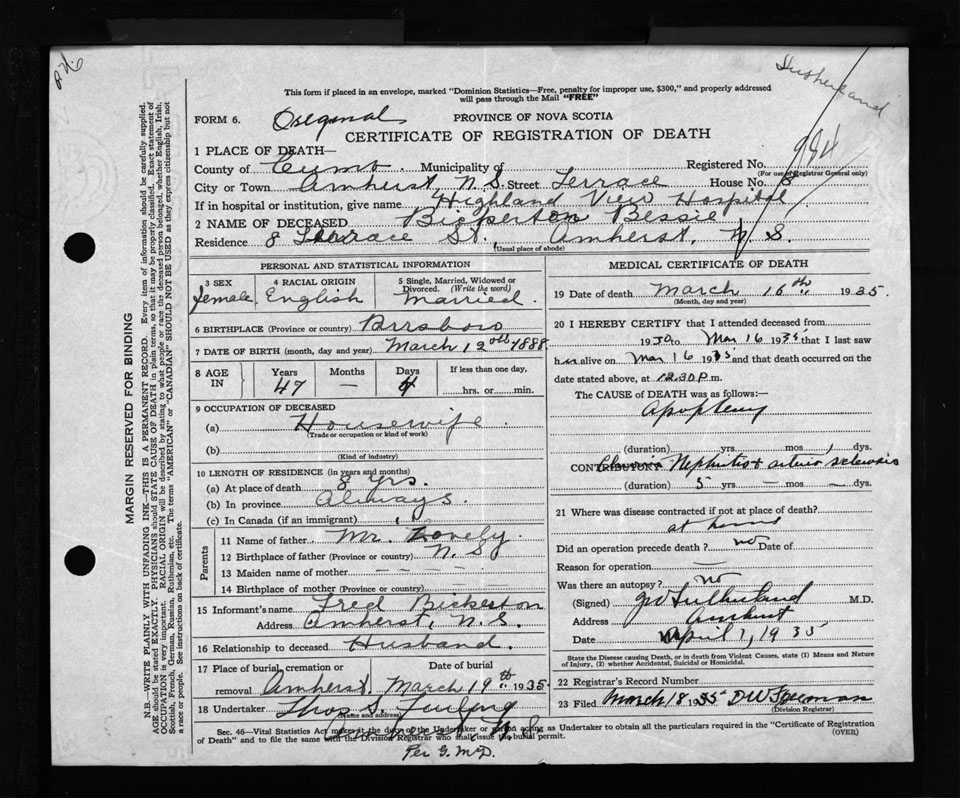 Sutherland
This form if placed in an envelope, marked "Dominion Statistics—Free, penalty for improper use, $300," and properly addressed
will pass through the Mail "FREE"
FORM 6. Original PROVINCE OF NOVA SCOTIA
CERTIFICATE OF REGISTRATION OF DEATH
984
1 PLACE OF DEATH—
County of Cumb. Municipality of Registered No.
(For use of Registrar General only)
City or Town Amherst, N.S. Street Terrace House No. 8
If in hospital or institution, give name Highland View Hospital
2 NAME OF DECEASED Bickerton Bessie
Residence 8 Terrace St., Amherst, N.S.
(Usual place of abode)
PERSONAL AND STATISTICAL INFORMATION
3 SEX 4 RACIAL ORIGIN 5 Single, Married, Widowed or Divorced. (Write the word)
female English Married.
6 BIRTHPLACE (Province or country) Parrsboro
7 DATE OF BIRTH (month, day and year) March 12th 1888
8 AGE IN Years Months Days If less than one day,
47 — 4 hrs. or min.
9 OCCUPATION OF DECEASED
(a) Housewife
(Trade or occupation or kind of work)
(b)
(Kind of industry)
10 LENGTH OF RESIDENCE (in years and months)
(a) At place of death 8 yrs.
(b) In province Always.
(c) In Canada (if an immigrant)
Parents
11 Name of father Mr. Lovely.
12 Birthplace of father (Province or country) N.S.
13 Maiden name of mother — — — —
14 Birthplace of mother (Province or country) — — —
15 Informant's name Fred Bickerton
Address Amherst, N.S.
16 Relationship to deceased Husband.
17 Place of burial, cremation or removal Amherst. Date of burial March 19th 1935.
18 Undertaker Thos S. Furlong
(Name & address)
Amherst, N.S.
Per G. McD.
MEDICAL CERTIFICATE OF DEATH
19 Date of death March 16th 1935.
(Month, day and year)
20 I HEREBY CERTIFY that I attended deceased from
1930 to Mar 16 1935 that I last saw
her alive on Mar 16 1935 and that death occurred on the
date stated above, at 12.30 P.m.
The CAUSE of DEATH was as follows:—
Apoplexy
(duration) yrs. mos. 1 dys.
CONTRIBUTORY Chronic Nephritis + arterio sclerosis
(duration) 5 yrs. — mos. — dys.
21 Where was disease contracted if not at place of death?
at home
Did an operation precede death? no Date of
Reason for operation —
Was there an autopsy? no
(Signed) J W Sutherland M.D.
Address Amherst
Date April 1, 1935
State the Disease causing Death, or in death from Violent Causes, state (1) Means and Nature
of Injury, (2) whether Accidental, Suicidal or Homicidal.
22 Registrar's Record Number
23 Filed March 18 1935
(Division Registrar)
Sec. 46—Vital Statistics Act makes it the duty of the Undertaker or person acting as Undertaker to obtain all the particulars required in the "Certificate of Registration
of Death" and to file the same with the Division Registrar who shall issue the burial permit. (OVER)
MARGIN RESERVED FOR BINDING
N.B.—WRITE PLAINLY WITH UNFADING INK—THIS IS A PERMANENT RECORD. Every item of information should be carefully supplied.
AGE should be stated EXACTLY. PHYSICIANS should STATE CAUSE OF DEATH in plain terms, so that it may be properly classified. Exact statement of
OCCUPATION is very important. RACIAL ORIGIN will be described by stating to what people or race the deceased person belonged, whether English, Irish,
Scottish, French, German, Russian, Ruthenian, etc. The terms "AMERICAN" or "CANADIAN" SHOULD NOT BE USED as they express citizenship but not
a race or people. See instructions on back of certificate.